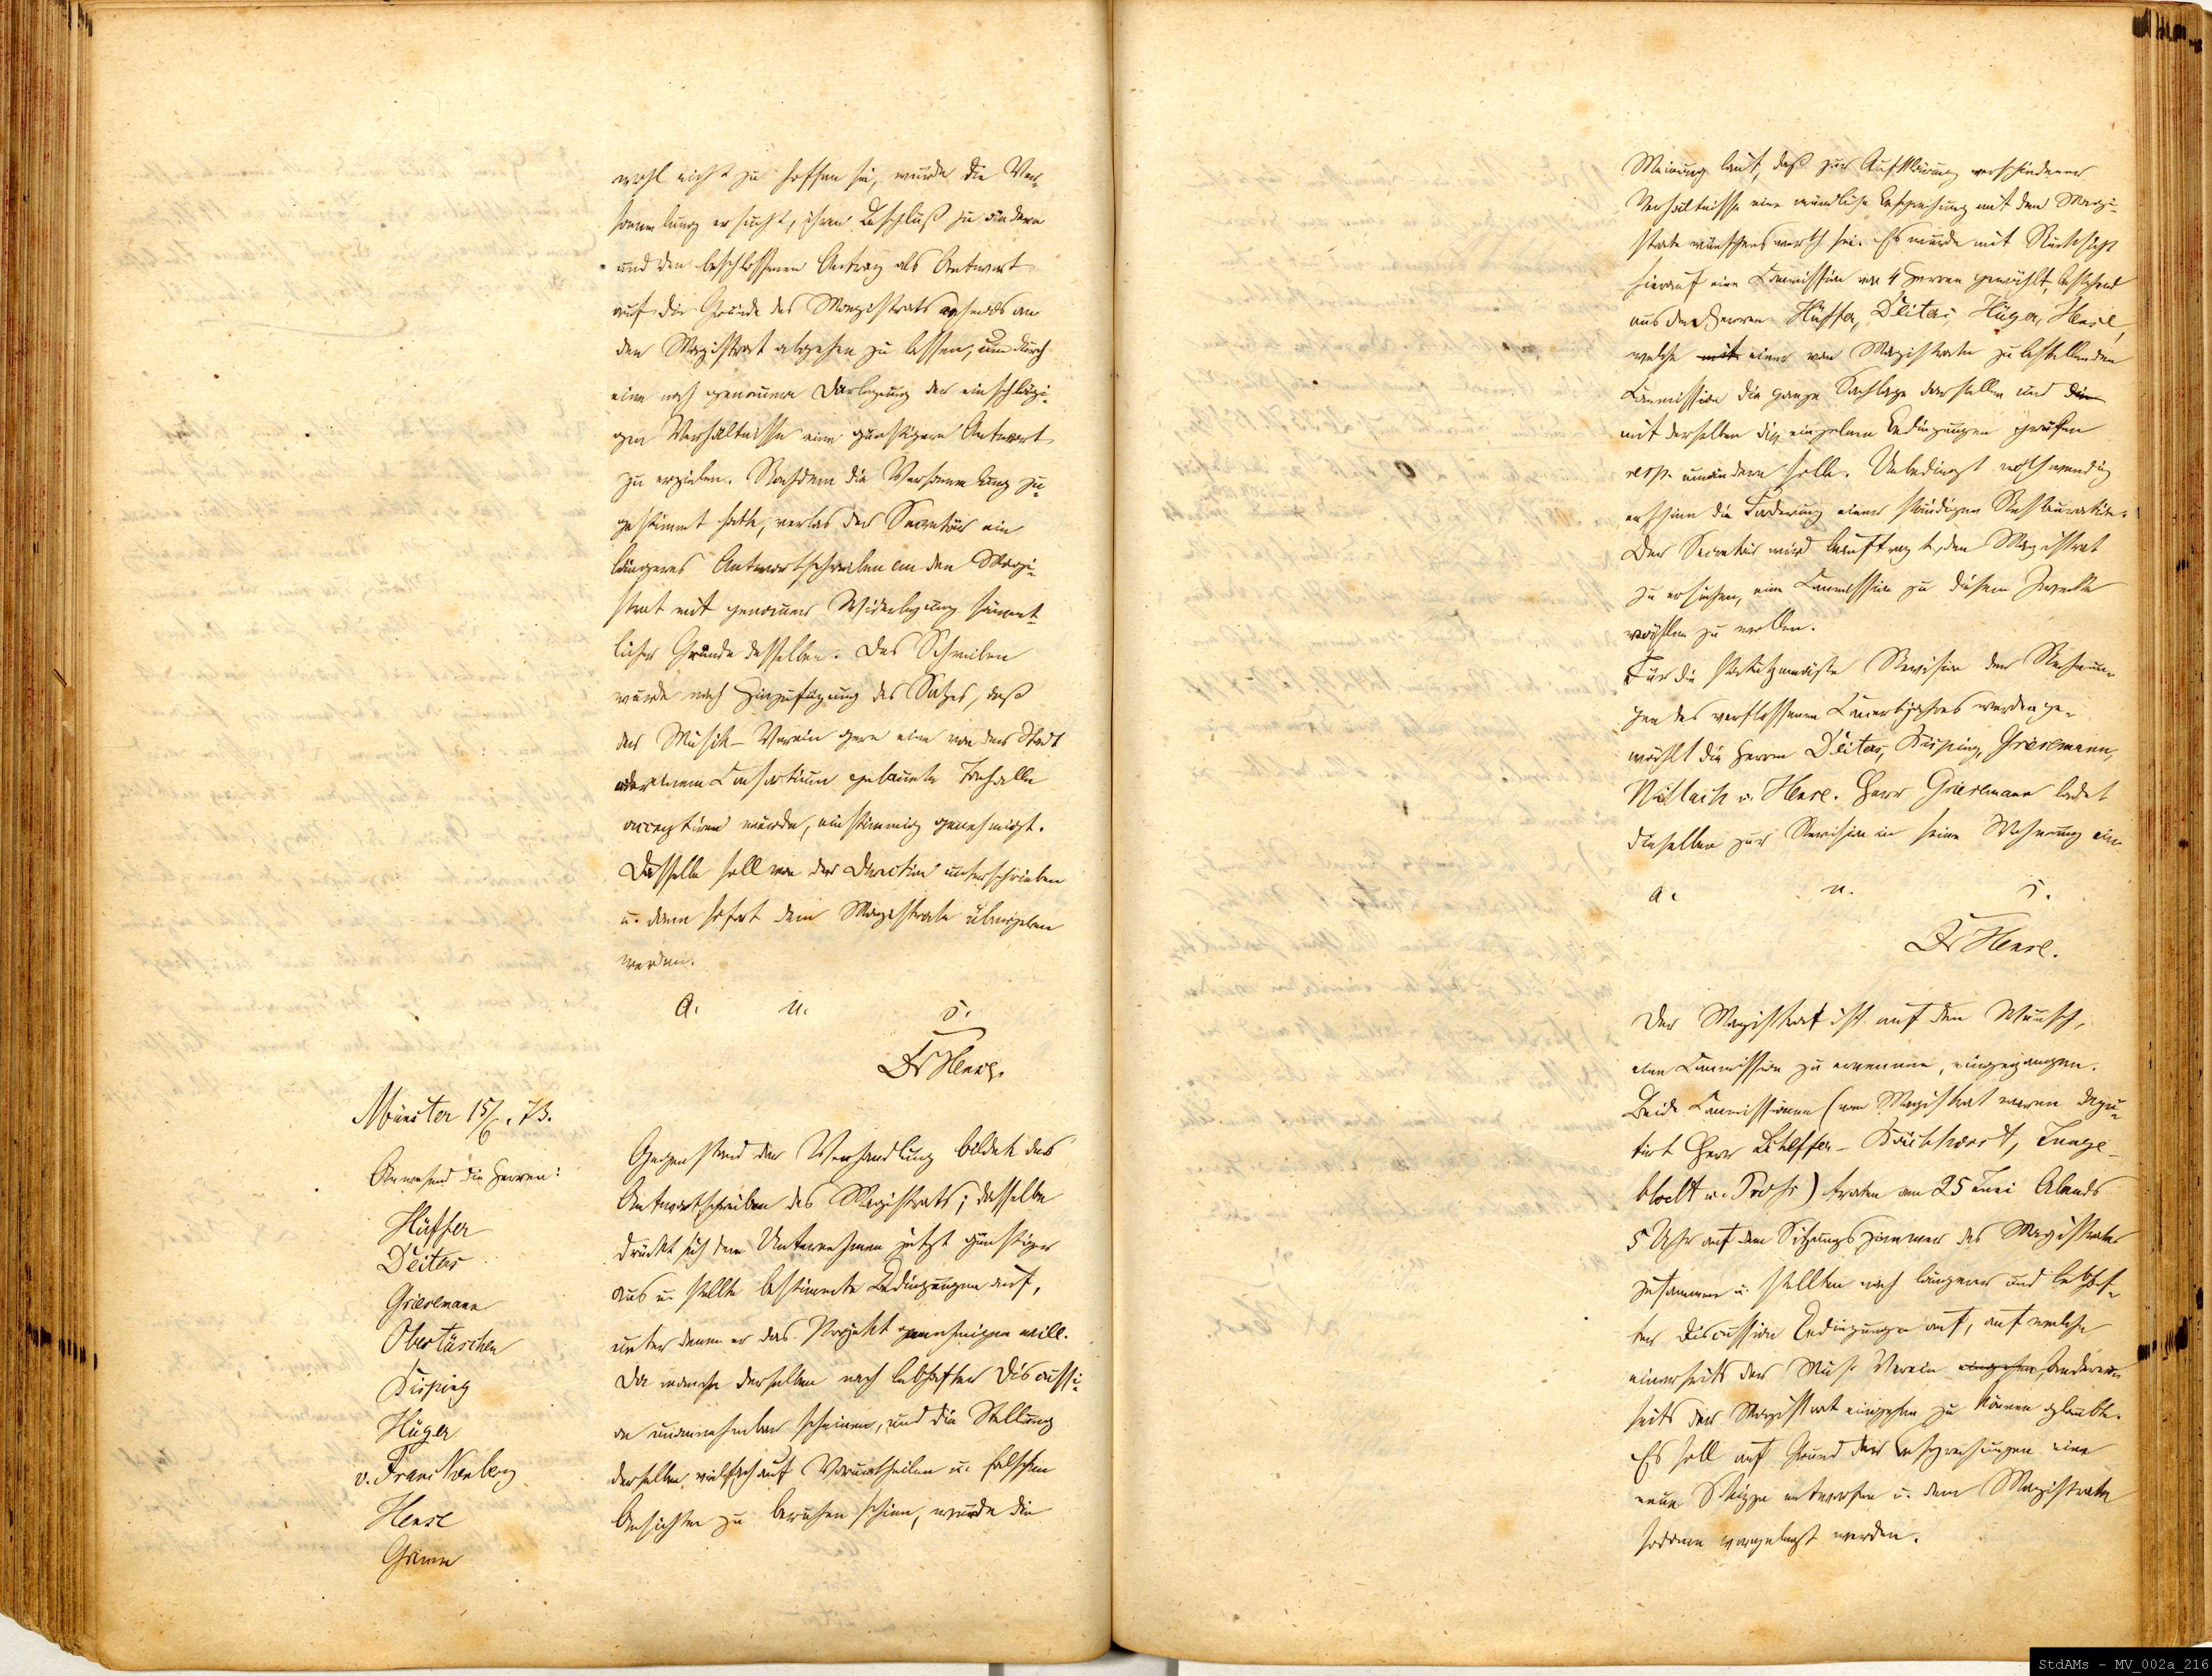 wohl nicht zu hoffen sei, wurde die Ver-
sammlung ersucht, ihren Beschluß zu ändern
und den beschlossenen Antrag als Antwort
auf die Gründe des Magistrats an
den Magistrat abgehen zu lassen, um durch
eine noch genauere Darlegung der einschlägi-
gen Verhältnisse eine günstigere Antwort
zu erzielen. Nachdem die Versammlung zu-
gestimmt hatte, verlas der Secretär ein
längeres Antwortschreiben an den Magi-
strat mit genauer Widerlegung sämmt-
licher Gründe desselben. Das Schreiben
wurde nach Hinzufügung des Satzes, daß
der Musik-Verein gern eine von der Stadt
oder einem Consortium gebaute Tonhalle
acceptiren würde, einstimmig genehmigt.
Dasselbe soll von der Direction unterschrieben
u. dann sofort dem Magistrate übergeben
werden.
a. u. s.
Dr Hense.
Münster 15/6. 73.
Anwesend die Herren:
Hüffer
Deiters
Grieseman
Obertüschen
Kisping
Hüger
v. Franc Nienberg
Hense
Grimm
Gegenstand der Verhandlung bildet das
Antwortschreiben des Magistrats; dasselbe
drückt sich dem Unternehmen jetzt günstiger
aus u. stellte bestimmte Bedingungen auf,
unter denen er das Projekt genehmigen will.
Da manche derselben nach lebhafter Discussi-
on unannehmbar scheinen, und die Stellung
derselben vielfach auf Vorurtheilen u. falschen
Ansichten zu beruhen schien, wurde die
Meinung laut, daß zur Aufklärung verschiedener
Verhältnisse eine mündliche Besprechung mit dem Magi-
strate wünschenswerth sei. Es wurde mit Rücksicht
hierauf eine Commission von 4 Herren gewählt, bestehend
aus den Herren Hüffer, Deiters, Hüger, Hense,
welche mit einer vom Magistrate zu bestellenden
Commission die ganze Sachlage darstellen und die
mit derselben die einzelnen Bedingungen prüfen
resp. umändern solle. Unbedingt nothwendig
erschien die Forderung einer ständigen Restauration.
Der Secretär wird beauftragt, den Magistrat
zu ersuchen, eine Commission zu diesem Zwecke
wählen zu wollen.
Für die statutgemäße Revision der Rechnun-
gen des verflossenen Concertjahres werden ge-
wählt die Herren Deiters, Kisping, Griesemann,
u. Hense. Herr Griesemann ladet
dieselben zur Revision in seine Wohnung ein.
a. u. s.
Dr Hense.
Der Magistrat ist auf den Wunsch,
eine Commission zu ernennen, eingegangen.
Beide Commissionen (vom Magistrat waren depu-
tirt Herr Scheffer-Boichhorst, Junge-
blodt u. ) traten am 25 Juni Abends
5 Uhr auf dem Sitzungszimmer des Magistrates
zusammen u. stellten nach längerer und lebhaf-
ter Discussion Bedingungen auf, auf welche
einerseits der Mus. Verein eingehen, anderer-
seits der Magistrat eingehen zu können glaubte.
Es soll auf Grund der Besprechungen eine
neue Skizze entworfen u. dem Magistrate
sodann vorgelegt werden.
StdAMs - MV_002a_216